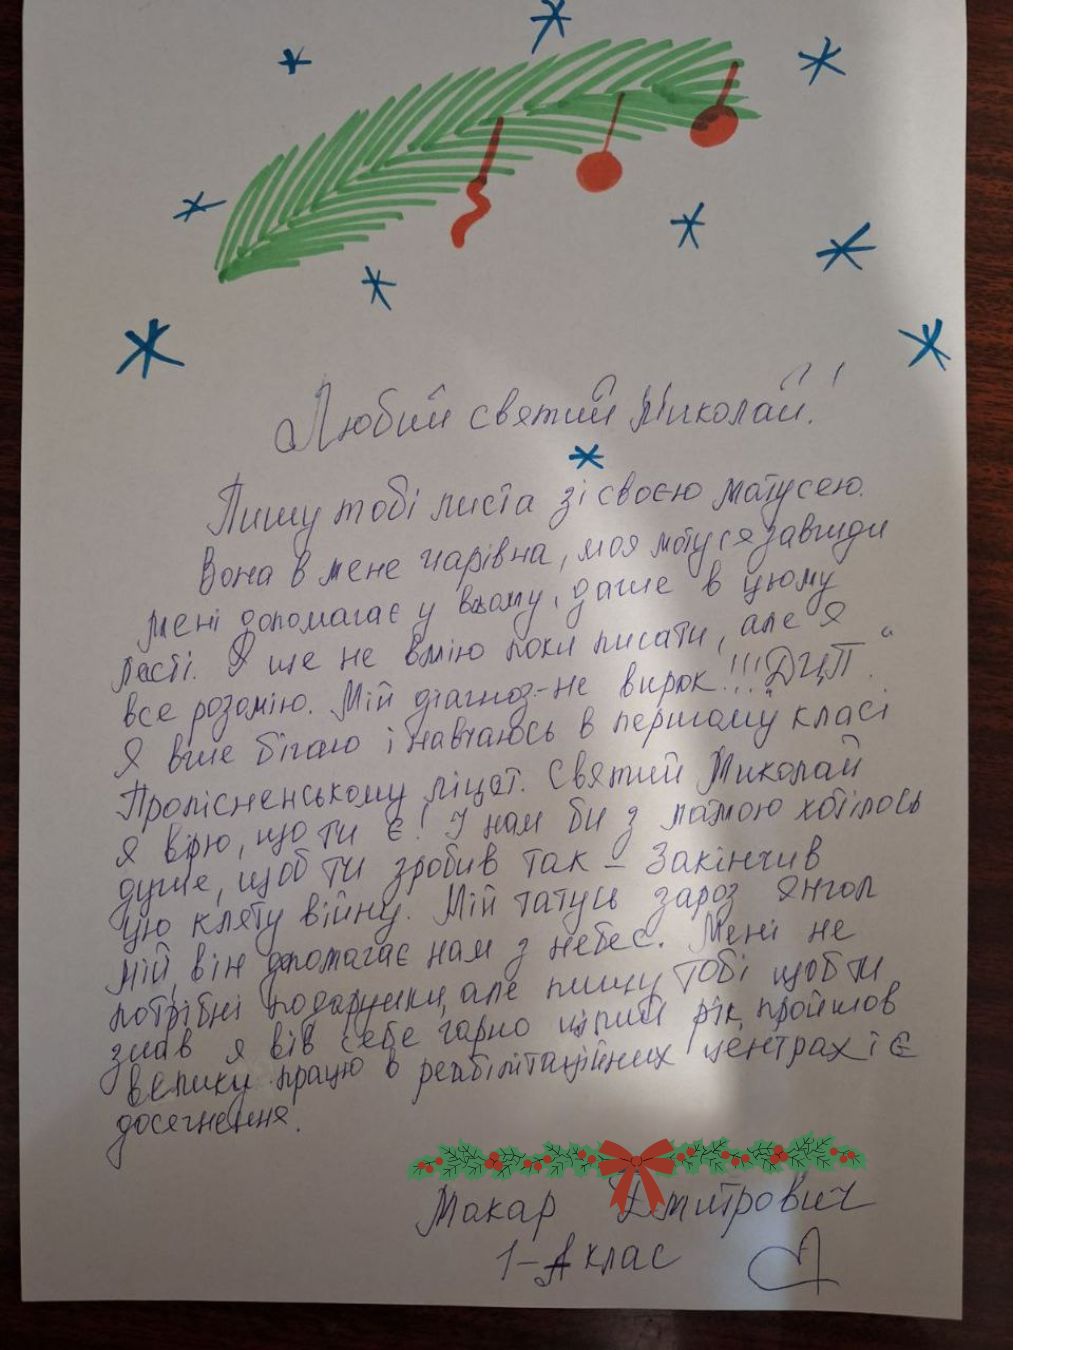 Любий святий Миколай!
Пишу тобі листа зі своєю матусею.
Вона в мене чарівна, моя матуся завжди
мені допомагає у всьому, даже в цьому
листі. Я ще не вмію поки писати, але я
все розумію. Мій діагноз-не вирок!!! "ДЦП".
Я вже бігаю і навчаюсь в першому класі
Пролісненському ліцеї. Святий Миколай
я вірю, що ти є! І нам би з мамою хотілось
дуже, щоб ти зробив так – Закінчив
цю кляту війну. Мій татусь зараз янгол
мій, він допомагає нам з небес. Мені не
потрібні подарунки, але пишу тобі щоб ти
знав я вів себе гарно цілий рік, пройшов
велику працю в реабілітаційних центрах і є
досягнення.
Макар Дмитрович
1-А клас